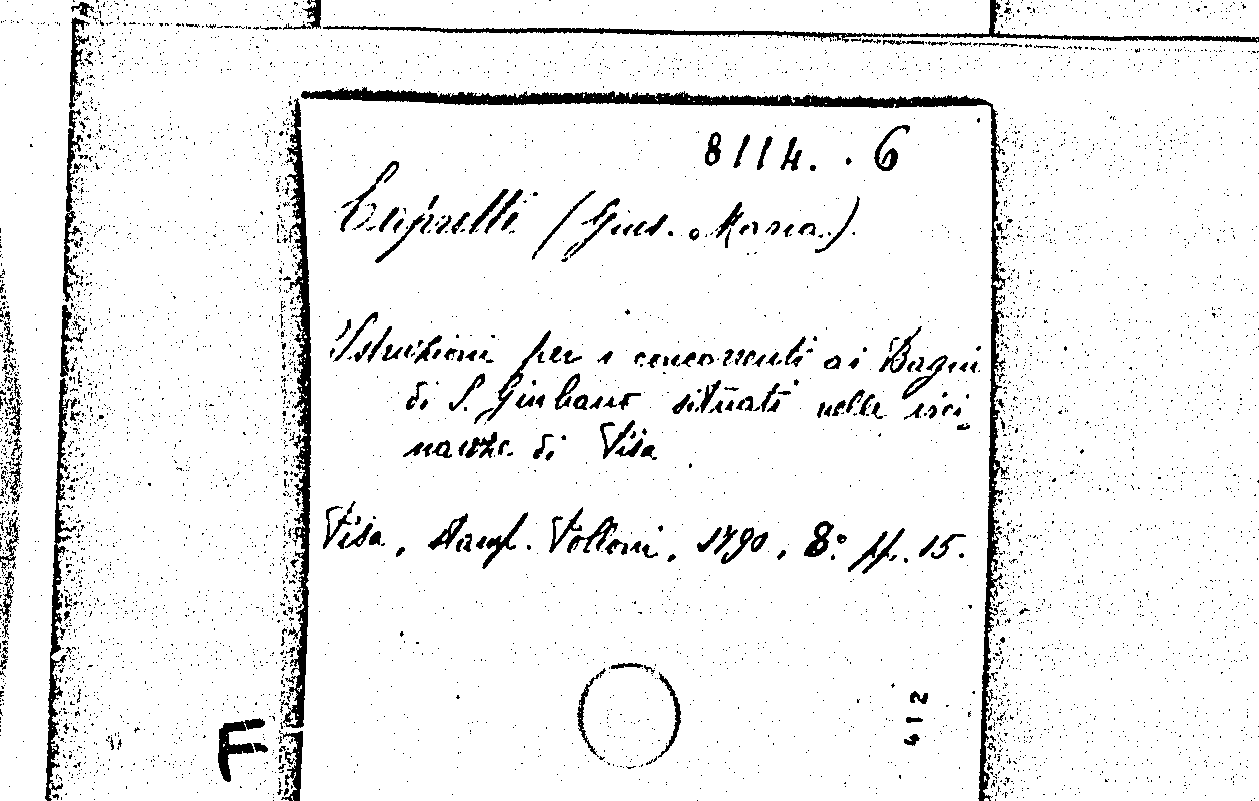 8114. . 6
Capretti (Gius. Maria.)
Istruzioni per i concorrenti ai Bagni
di S. Giuliano situati nelle vici-
nanze di Pisa
Pisa, stamp. Polloni, 1790, 8° pp. 15.
412
F